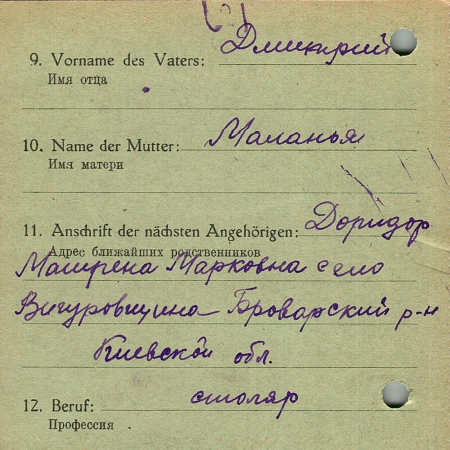 9. Vorname des Vaters: Дмитрий
Имя отца
10. Name der Mutter: Маланья
Имя матери
11. Anschrift der nächsten Angehörigen: Доридор
Адрес ближайших родственников
Матрена Марковна село
Вигуровщина Броварский р-н
Киевской обл.
12. Beruf: столяр
Профессия